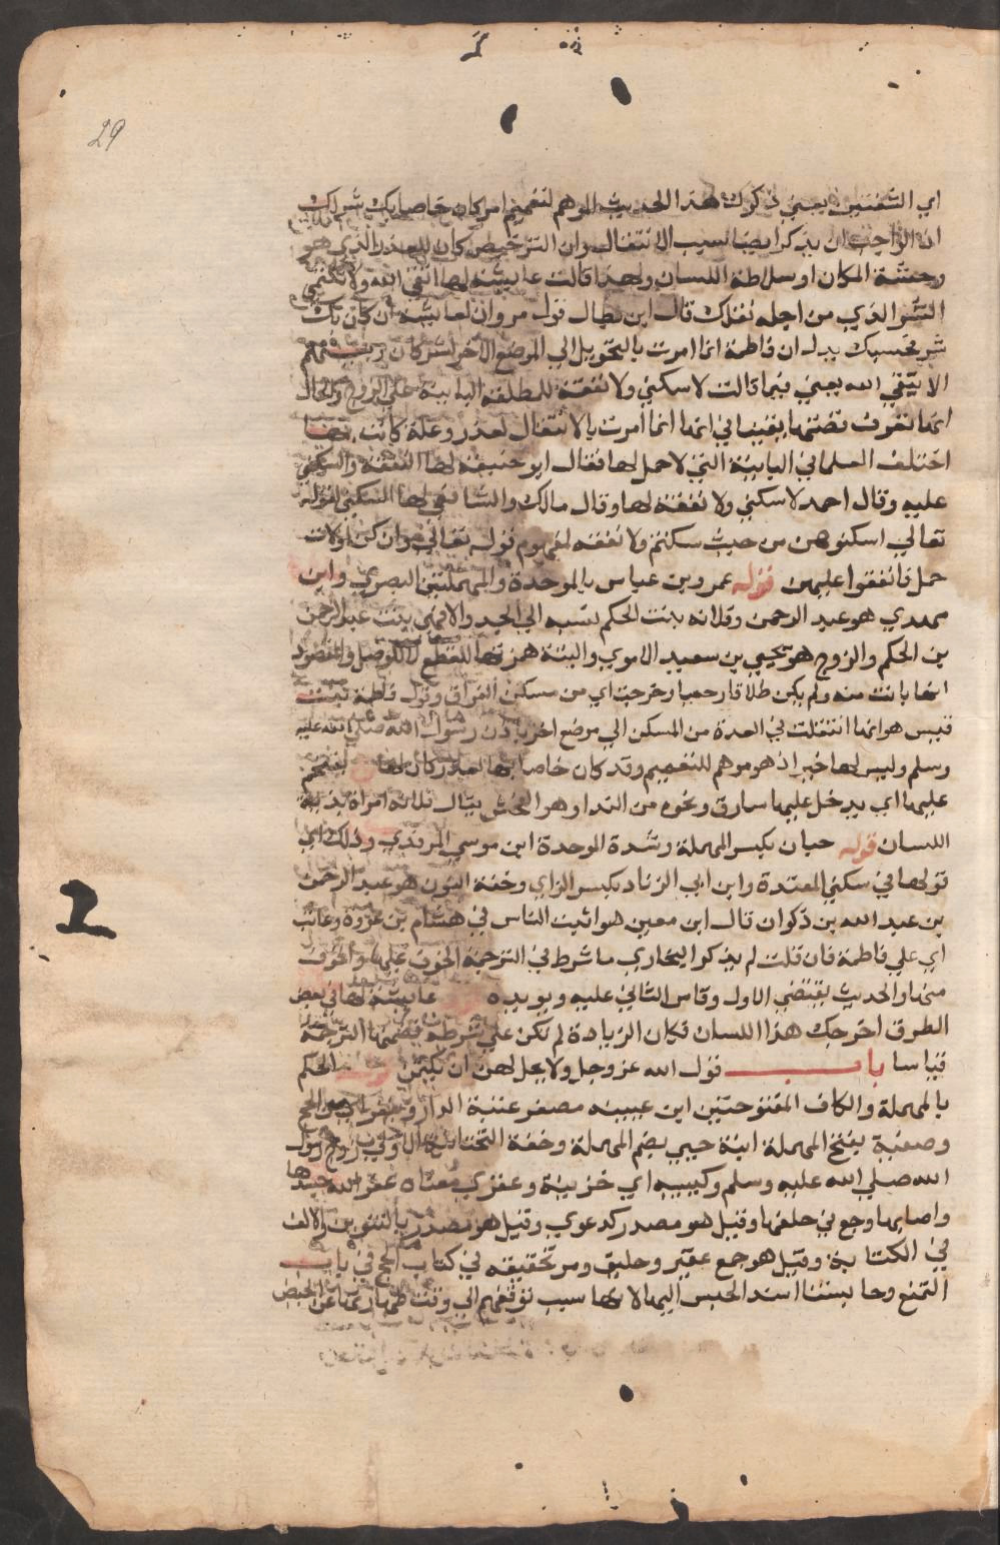 29
اي الشفتين يعني ذكرك هذا الحديث الموهم لتعميم امر كان خاصا بك شر لك
ان الواجب ان يذكر ايضا سبب الانتقال وان الترخيص كان للعذر الذي هو
وحشة المكان او سلاطة اللسان ولهذا قالت عايشة لها اتقي الله ولا تكتمي
السر الذي من اجله نقلك قال ابن بطال قول مروان لعايشة ان كان بك
شر فحسبك يدل ان فاطمة انما امرت بالتحويل الي الموضع الاخر لشر كان بينهم
الا تتقي الله يعني فيما قالت لا سكني ولا نفقة للمطلقة البايبة علي الزوج والحال
انها تعرف قصتها يقينا في انها انما امرت بالانتقال لعذر وعلة كانت بها
اختلف العلما في البايبة التي لا حمل لها فقال ابو حنيفة لها النفقة والسكني
عليه وقال احمد لا سكني ولا نفقة لها وقال مالك والشافعي لها السكني لقوله
تعالي اسكنوهن من حيث سكنتم ولا نفقة لمفهوم قوله تعالي وان كن اولات
حمل فانفقوا عليهن قوله عمرو بن عباس بالموحدة والمهملتين البصري وابن
مهدي هو عبد الرحمن وفلانه بنت الحكم نسبه الي الجد والا فهي بنت عبد الرحمن
بن الحكم والزوج هو يحيي بن سعيد الاموي والبتة همزتها للقطع لا للوصل والمقصود
انها بانت منه ولم يكن طلاقا رجعيا وخرجت اي من مسكن الفراق وقول فاطمة بنت
قيس هو انها انتقلت في العدة من المسكن الي موضع اخر باذن رسول الله صلي الله عليه
وسلم وليس لها خير اذ هو موهم للتعميم وقد كان خاصا بها لعذر كان لها يقتحم
عليها اي يدخل عليها سارق ونحوه من البذا وهو الفحش يقال فلانة امراة بذية
اللسان قوله حبان بكسر المهملة وشدة الموحدة ابن موسي المروذي وذلك اي
قولها في سكني المعتدة وابن ابي الزناد بكسر الزاي وخفة النون هو عبد الرحمن
بن عبد الله بن ذكوان قال ابن معين هو اثبت الناس في هشام بن عروة وعابت
اي علي فاطمة فان قلت لم يذكر البخاري ما شرط في الترجمة الخوف عليها والخوف
منها والحديث يقتضي الاول وقاس الثاني عليه ويويده عايشة لها في بعض
الطرق اخرجك هذا اللسان فكان الزيادة لم تكن علي شرطه فضمها الترجمة
قياسا باب قول الله عز وجل ولا يحل لهن ان يكتمن الحكم
بالمهملة والكاف المفتوحتين ابن عيينه مصغر عتبة الدار
وصفية بفتح المهملة ابنة حيي بضم المهملة وخفة التحتانية الاولي زوج رسول
الله صلي الله عليه وسلم وكييبه اي حزينة وعقري معناه عقر الله جسدها
واصابها وجع في حلقها وقيل هو مصدر كدعوي وقيل هو مصدر بالتنوين والالف
في الكتابة وقيل هو جمع عقير وحليق ومر تحقيقه في كتاب الحج في باب
التمتع وحابستنا اسند الحبس اليها لانها سبب توقفهم الي وقت طهارتها عن الحيض